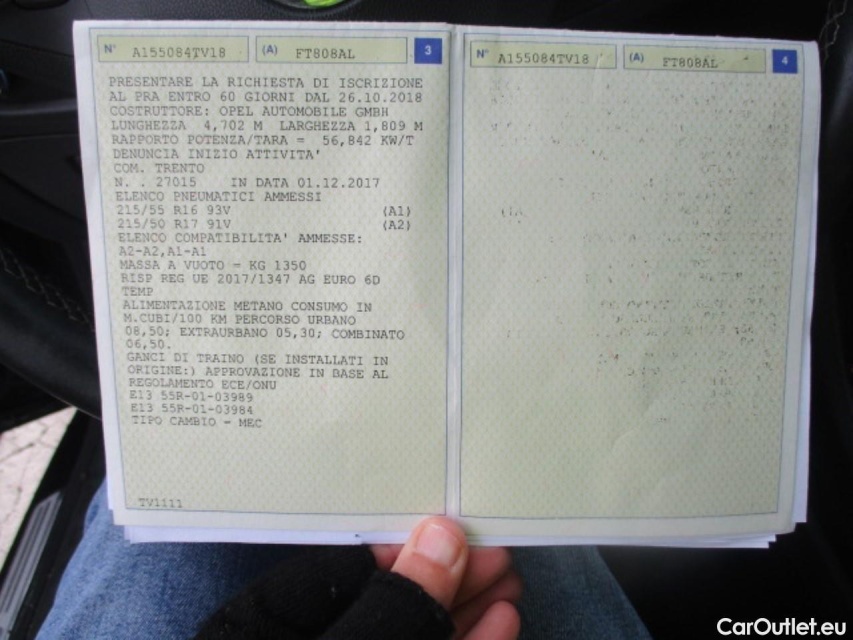 N° A155084TV18 (A) FT808AL 3
PRESENTARE LA RICHIESTA DI ISCRIZIONE
AL PRA ENTRO 60 GIORNI DAL 26.10.2018
COSTRUTTORE: OPEL AUTOMOBILE GMBH
LUNGHEZZA 4,702 M LARGHEZZA 1,809 M
RAPPORTO POTENZA/TARA = 56,842 KW/T
DENUNCIA INIZIO ATTIVITA'
COM. TRENTO
N. . 27015 IN DATA 01.12.2017
ELENCO PNEUMATICI AMMESSI
215/55 R16 93V (A1)
215/50 R17 91V (A2)
ELENCO COMPATIBILITA' AMMESSE:
A2-A2,A1-A1
MASSA A VUOTO = KG 1350
RISP REG UE 2017/1347 AG EURO 6D
TEMP
ALIMENTAZIONE METANO CONSUMO IN
M.CUBI/100 KM PERCORSO URBANO
08,50; EXTRAURBANO 05,30; COMBINATO
06,50.
GANCI DI TRAINO (SE INSTALLATI IN
ORIGINE:) APPROVAZIONE IN BASE AL
REGOLAMENTO ECE/ONU
E13 55R-01-03989
E13 55R-01-03984
TIPO CAMBIO = MEC
TV1111
N° A155084TV18 (A) FT808AL 4
CarOutlet.eu